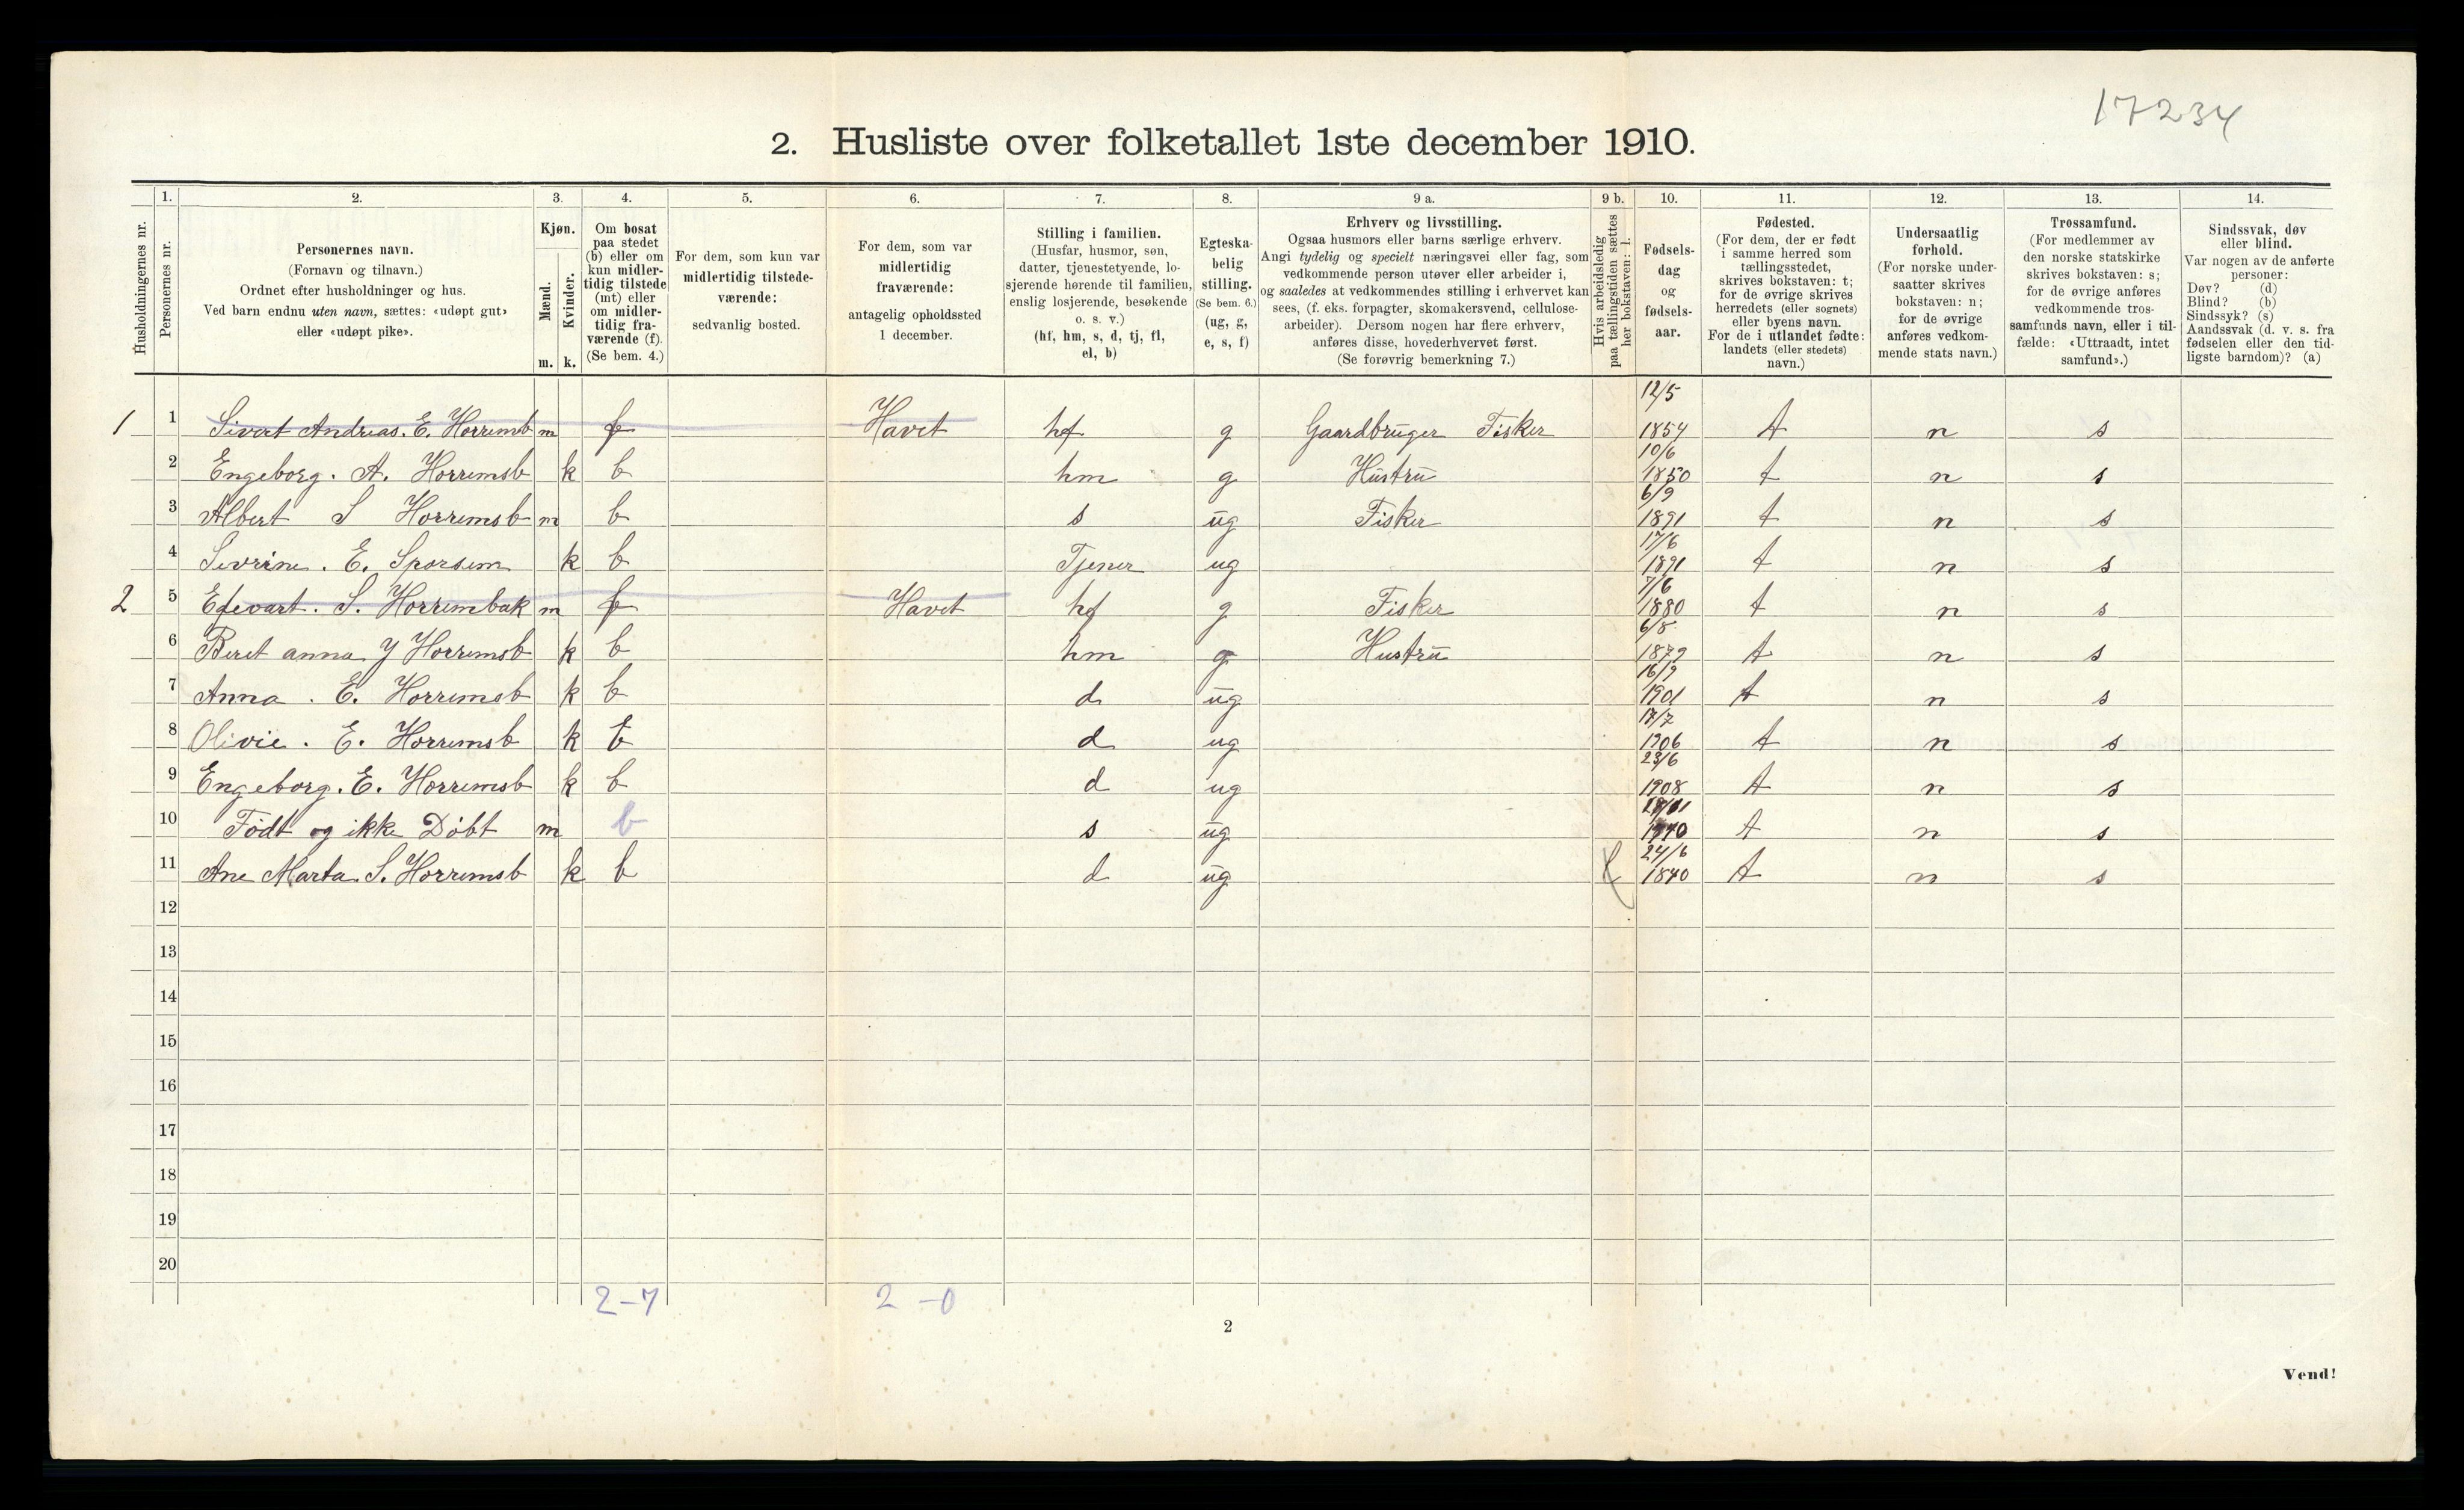 17234
2. Husliste over folketallet 1ste december 1910.
Husholdningernes nr.
1. Personernes nr.
2. Personernes navn.
(Fornavn og tilnavn.)
Ordnet efter husholdninger og hus.
Ved barn endnu uten navn, sættes: «udøpt gut»
eller «udøpt pike».
3. Kjøn.
Mænd. m.
Kvinder. k.
4. Om bosat
paa stedet
(b) eller om
kun midler-
tidig tilstede
(mt) eller
om midler-
tidig fra-
værende (f).
(Se bem. 4.)
5. For dem, som kun var
midlertidig tilstede-
værende:
sedvanlig bosted.
6. For dem, som var
midlertidig
fraværende:
antagelig opholdssted
1 december.
7. Stilling i familien.
(Husfar, husmor, søn,
datter, tjenestetyende, lo-
sjerende hørende til familien,
enslig losjerende, besøkende
o. s. v.)
(hf, hm, s, d, tj, fl,
el, b)
8. Egteska-
belig
stilling.
(Se bem. 6.)
(ug, g,
e, s, f)
9 a. Erhverv og livsstilling.
Ogsaa husmors eller barns særlige erhverv.
Angi tydelig og specielt næringsvei eller fag, som
vedkommende person utøver eller arbeider i,
og saaledes at vedkommendes stilling i erhvervet kan
sees, (f. eks. forpagter, skomakersvend, cellulose-
arbeider). Dersom nogen har flere erhverv,
anføres disse, hovederhvervet først.
(Se forøvrig bemerkning 7.)
9 b. Hvis arbeidsledig
paa tællingstiden sættes
her bokstaven: l.
10. Fødsels-
dag
og
fødsels-
aar.
11. Fødested.
(For dem, der er født
i samme herred som
tællingsstedet,
skrives bokstaven: t;
for de øvrige skrives
herredets (eller sognets)
eller byens navn.
For de i utlandet fødte:
landets (eller stedets)
navn.)
12. Undersaatlig
forhold.
(For norske under-
saatter skrives
bokstaven: n;
for de øvrige
anføres vedkom-
mende stats navn.)
13. Trossamfund.
(For medlemmer av
den norske statskirke
skrives bokstaven: s;
for de øvrige anføres
vedkommende tros-
samfunds navn, eller i til-
fælde: «Uttraadt, intet
samfund».)
14. Sindssvak, døv
eller blind.
Var nogen av de anførte
personer:
Døv? (d)
Blind? (b)
Sindssyk? (s)
Aandssvak (d. v. s. fra
fødselen eller den tid-
ligste barndom)? (a)
1 1 Sivert Andreas. E. Horremb m f Havet hf g Gaardbruger Fisker 12/5 1854 t n s
2 Engeborg. A. Horremsb k b hm g Hustru 10/6 1850 t n s
3 Albert S Horremsb m b s ug Fisker 6/9 1891 t n s
4 Sevrine. E. Sporsem k b Tjener ug 17/6 1891 t n s
2 5 Edevart. S. Horrembak m f Havet hf g Fisker 7/6 1880 t n s
6 Beret anna J Horremsb k b hm g Hustru 6/8 1879 t n s
7 Anna. E. Horremsb k b d ug 16/9 1901 t n s
8 Olivie. E. Horremsb k b d ug 17/7 1906 t n s
9 Engeborg. E. Horremsb k b d ug 23/6 1908 t n s
10 Födt og ikke Döbt m b s ug t n s
11 Ane Marta S. Horremsb k b d ug 24/6 1840 t n s
12
13
14
15
16
17
18
19
20
2-7 2-0
2
Vend!